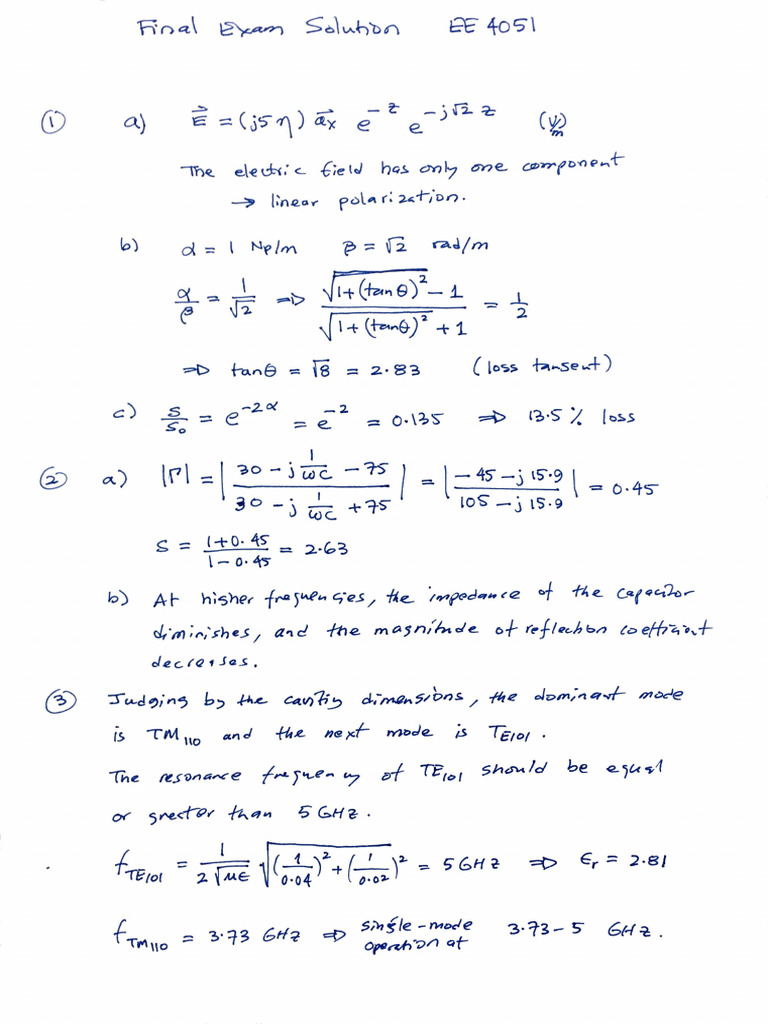 Final Exam Solution EE 4051
① a) E⃗ = (j5η) a⃗x e^{-z} e^{-j√2 z} (V/m)
The electric field has only one component
→ linear polarization.
b) α = 1 Np/m β = √2 rad/m
α/β = 1/√2 ⇒ (√(1+(tanθ)²) - 1)/(√(1+(tanθ)²) + 1) = 1/2
⇒ tanθ = √8 = 2.83 (loss tansent)
c) S/S₀ = e^{-2α} = e^{-2} = 0.135 ⇒ 13.5% loss
② a) |Γ| = |(30 - j 1/ωC - 75)/(30 - j 1/ωC + 75)| = |(-45 - j15.9)/(105 - j15.9)| = 0.45
S = (1+0.45)/(1-0.45) = 2.63
b) At higher frequencies, the impedance of the capacitor
diminishes, and the magnitude of reflection coefficient
decreases.
③ Judging by the cavitiy dimensions, the dominant mode
is TM₁₁₀ and the next mode is TE₁₀₁.
The resonance frequency of TE₁₀₁ should be equal
or greater than 5 GHz.
f_{TE101} = 1/(2√με) √((1/0.04)² + (1/0.02)²) = 5 GHz ⇒ εr = 2.81
f_{TM110} = 3.73 GHz ⇒ single-mode operation at 3.73-5 GHz.